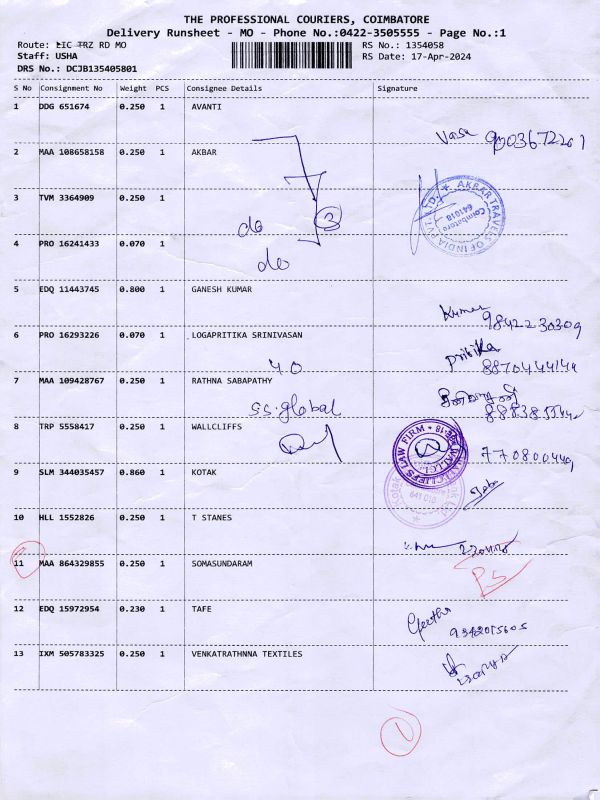 THE PROFESSIONAL COURIERS, COIMBATORE
Delivery Runsheet - MO - Phone No.:0422-3505555 - Page No.:1
Route: LIC TRZ RD MO
RS No.: 1354058
Staff: USHA
RS Date: 17-Apr-2024
DRS No.: DCJB135405801
S No Consignment No Weight PCS Consignee Details Signature
1 DDG 651674 0.250 1 AVANTI
Vasu 9003672261
2 MAA 108658158 0.250 1 AKBAR
3 TVM 3364909 0.250 1
do 3
AKBAR TRAVELS OF INDIA PVT. LTD.
Coimbatore
641018
4 PRO 16241433 0.070 1
do
5 EDQ 11443745 0.800 1 GANESH KUMAR
Kumar
9842230309
6 PRO 16293226 0.070 1 LOGAPRITIKA SRINIVASAN
Pritika
7 MAA 109428767 0.250 1 RATHNA SABAPATHY
s.s.global
8 TRP 5558417 0.250 1 WALLCLIFFS
WALLCLIFFS LAW FIRM
9 SLM 344035457 0.860 1 KOTAK
Kotak
641 018
10 HLL 1552826 0.250 1 T STANES
11 MAA 864329855 0.250 1 SOMASUNDARAM
PS
12 EDQ 15972954 0.230 1 TAFE
Geetha
9342015605
13 IXM 505783325 0.250 1 VENKATRATHNNA TEXTILES
1